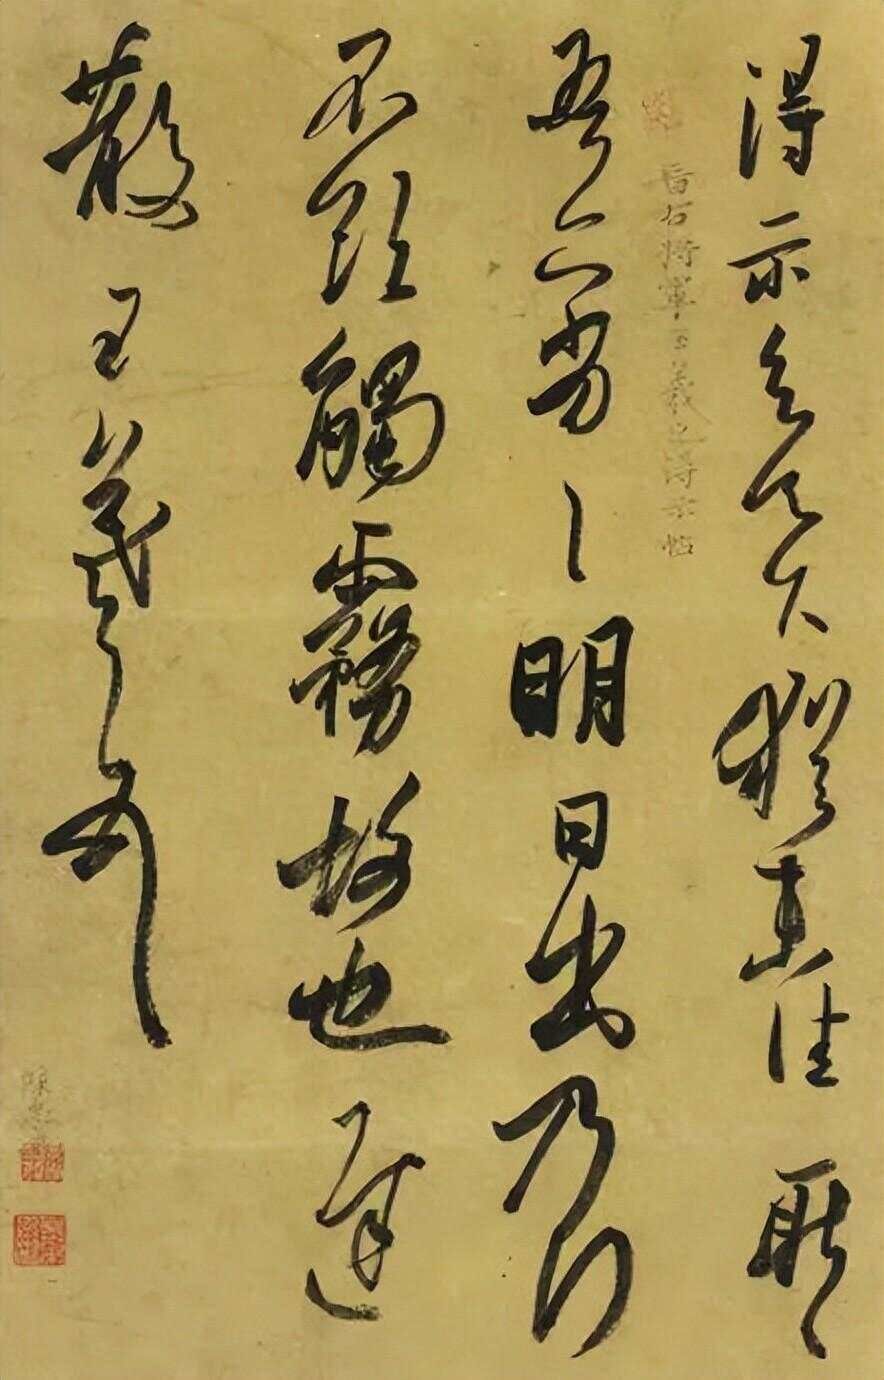 得示知足下猶未佳耿〻
晉右將軍王羲之得示帖
吾亦劣〻明日出乃行
不欲觸霧故也遲
散王羲之頓首
陳